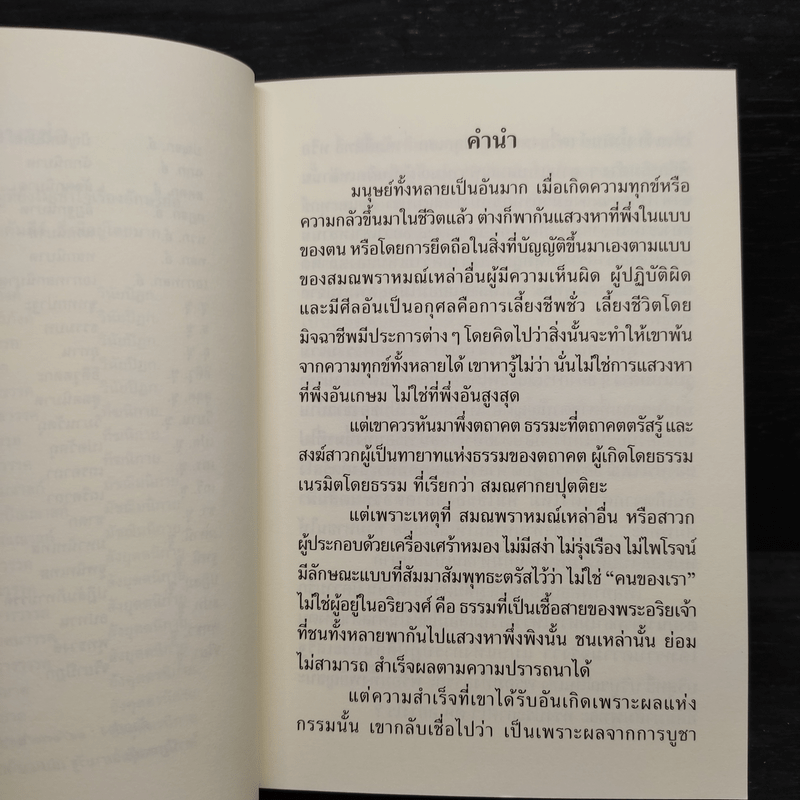 คำนำ
มนุษย์ทั้งหลายเป็นอันมาก เมื่อเกิดความทุกข์หรือ
ความกลัวขึ้นมาในชีวิตแล้ว ต่างก็พากันแสวงหาที่พึ่งในแบบ
ของตน หรือโดยการยึดถือในสิ่งที่บัญญัติขึ้นมาเองตามแบบ
ของสมณพราหมณ์เหล่าอื่นผู้มีความเห็นผิด ผู้ปฏิบัติผิด
และมีศีลอันเป็นอกุศลคือการเลี้ยงชีพชั่ว เลี้ยงชีวิตโดย
มิจฉาชีพมีประการต่าง ๆ โดยคิดไปว่าสิ่งนั้นจะทำให้เขาพ้น
จากความทุกข์ทั้งหลายได้ เขาหารู้ไม่ว่า นั่นไม่ใช่การแสวงหา
ที่พึ่งอันเกษม ไม่ใช่ที่พึ่งอันสูงสุด
แต่เขาควรหันมาพึ่งตถาคต ธรรมะที่ตถาคตตรัสรู้ และ
สงฆ์สาวกผู้เป็นทายาทแห่งธรรมของตถาคต ผู้เกิดโดยธรรม
เนรมิตโดยธรรม ที่เรียกว่า สมณศากยปุตติยะ
แต่เพราะเหตุที่ สมณพราหมณ์เหล่าอื่น หรือสาวก
ผู้ประกอบด้วยเครื่องเศร้าหมอง ไม่มีสง่า ไม่รุ่งเรือง ไม่ไพโรจน์
มีลักษณะแบบที่สัมมาสัมพุทธะตรัสไว้ว่า ไม่ใช่ “คนของเรา”
ไม่ใช่ผู้อยู่ในอริยวงศ์ คือ ธรรมที่เป็นเชื้อสายของพระอริยเจ้า
ที่ชนทั้งหลายพากันไปแสวงหาพึ่งพิงนั้น ชนเหล่านั้น ย่อม
ไม่สามารถ สำเร็จผลตามความปรารถนาได้
แต่ความสำเร็จที่เขาได้รับอันเกิดเพราะผลแห่ง
กรรมนั้น เขากลับเชื่อไปว่า เป็นเพราะผลจากการบูชา